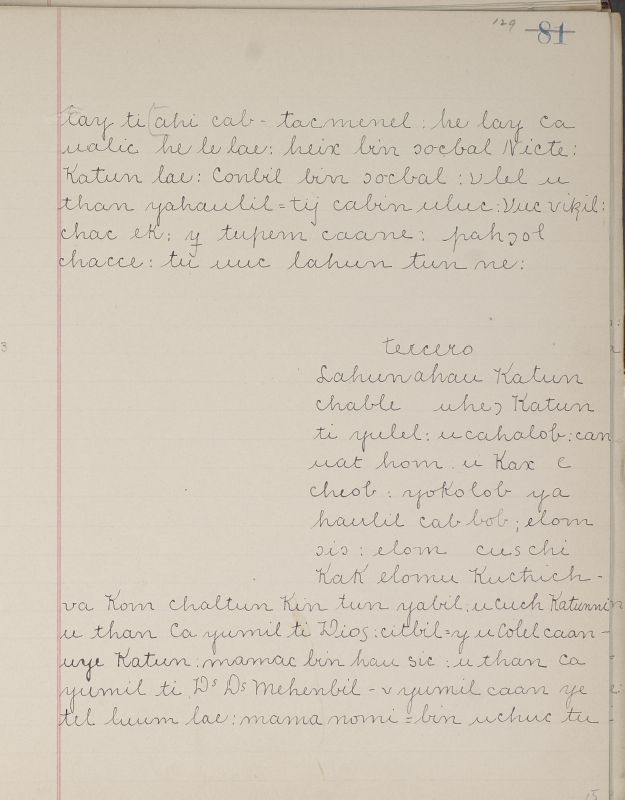 129 81
tay ti (ahi cab - tacmenel : he lay ca
ualic he le lae : heix bin ɔocbal Nicte :
Katun lae : Conbil bin ɔocbal : v lel u
than yahaulil = tij cabin uluc : Vuc vikil :
chac ek : y tupem caane : pahɔol
chacce : tu uuc lahun tun ne :
3
tercero
Lahun ahau Katun
chable uheɔ Katun
ti yulel : u cahalob : can
uat hom u Kax e
cheob : yokolob ya
haulil cab bob ; elom
sis : elom cuschi
KaK elomu Kuchich -
va Kom chaltun Kin tun yabil ; u cuch Katunnin
u than Ca yumil ti Dios : citbil = y u Colel caan -
uye Katun : mamac bin hau sic : u than ca
yumil ti Ds Ds Mehenbil - v yumil caan ye
tel luum lae : mama nomi = bin uchuc tu
15